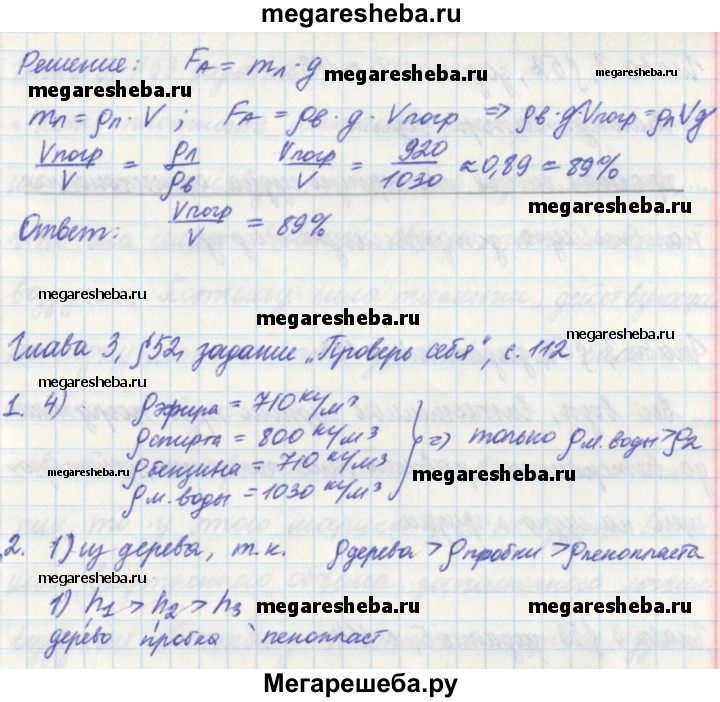 megaresheba.ru
Решение: Fₐ = mл · g
megaresheba.ru
megaresheba.ru
mл = ρл · V ; Fₐ = ρв · g · Vпогр ⇒ ρв · g Vпогр = ρл V g
Vпогр/V = ρл/ρв Vпогр/V = 920/1030 ≈ 0,89 = 89%
megaresheba.ru
Ответ: Vпогр/V = 89%
megaresheba.ru
megaresheba.ru
megaresheba.ru
Глава 3, §52, задание „Проверь себя", с. 112
megaresheba.ru
1. 4) ρэфира = 710 кг/м³
ρспирта = 800 кг/м³
ρбензина = 710 кг/м³
ρм.воды = 1030 кг/м³
⇒ только ρм.воды > ρ2
megaresheba.ru
megaresheba.ru
2. 1) из дерева, т.к. ρдерева > ρпробки > ρпенопласта
megaresheba.ru
1) h₁ > h₂ > h₃
megaresheba.ru
megaresheba.ru
дерево пробка пенопласт
megaresheba.ru
Мегарешеба.ру